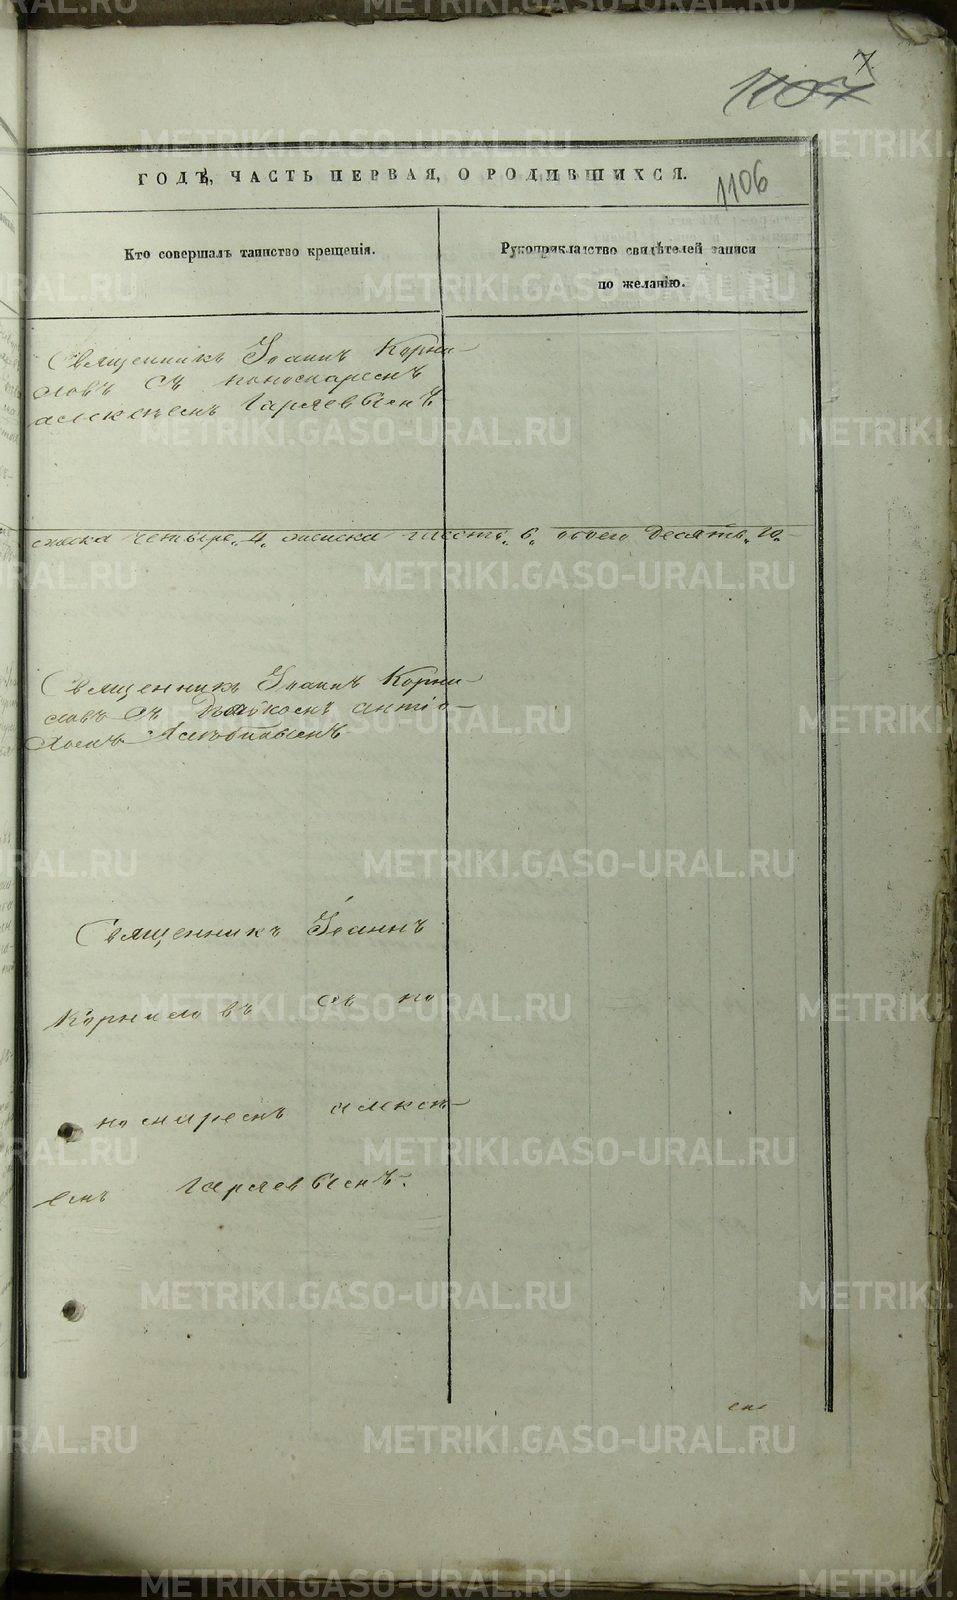 7
1107
ГОДѢ, ЧАСТЬ ПЕРВАЯ, О РОДИВШИХСЯ.
1106
Кто совершалъ таинство крещенія.
Рукоприкладство свидѣтелей записи
по желанію.
Священникъ Іоаннъ Корни-
ловъ съ пономаремъ
алексѣемъ Гаряевымъ
мужска четыре „4„ женска шесть „6„ обоего Десять „10„
Священникъ Іоаннъ Корни-
ловъ съ Дьякономъ антіо-
хомъ
Священникъ Іоаннъ
Корниловъ съ по
номаремъ алексѣ-
емъ Гаряевымъ.
METRIKI.GASO-URAL.RU